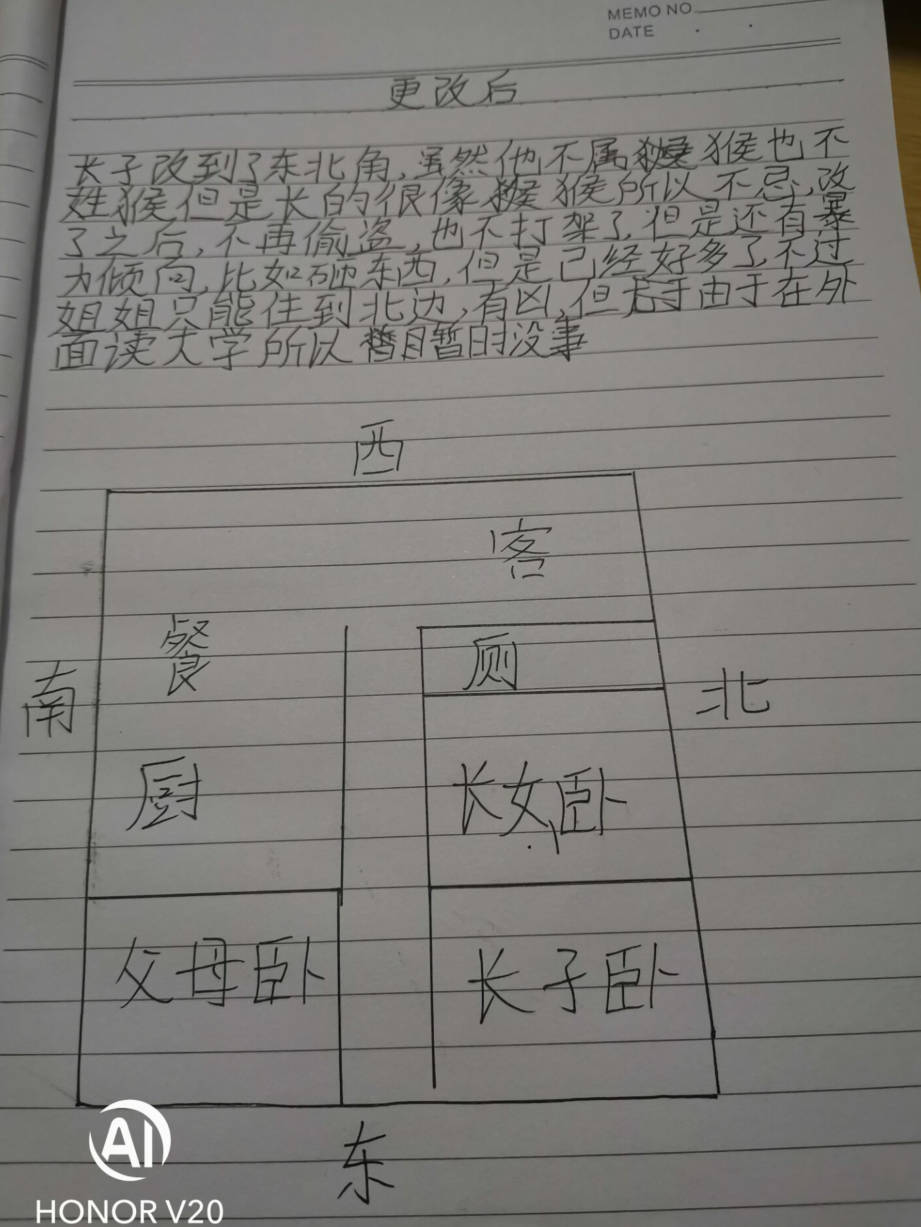 MEMO NO
DATE
更改后
长子改到了东北角,虽然他不属猴也不
姓猴,但是长的很像猴所以不忌,改
了之后,不再偷盗,也不打架了,但是还有暴
力倾向,比如砸东西,但是已经好多了,不过
姐姐只能住到北边,有凶,但由于在外
面读大学所以暂时没事
西
客
餐
厕
南
北
厨
长女卧
父母卧
长子卧
东
AI
HONOR V20